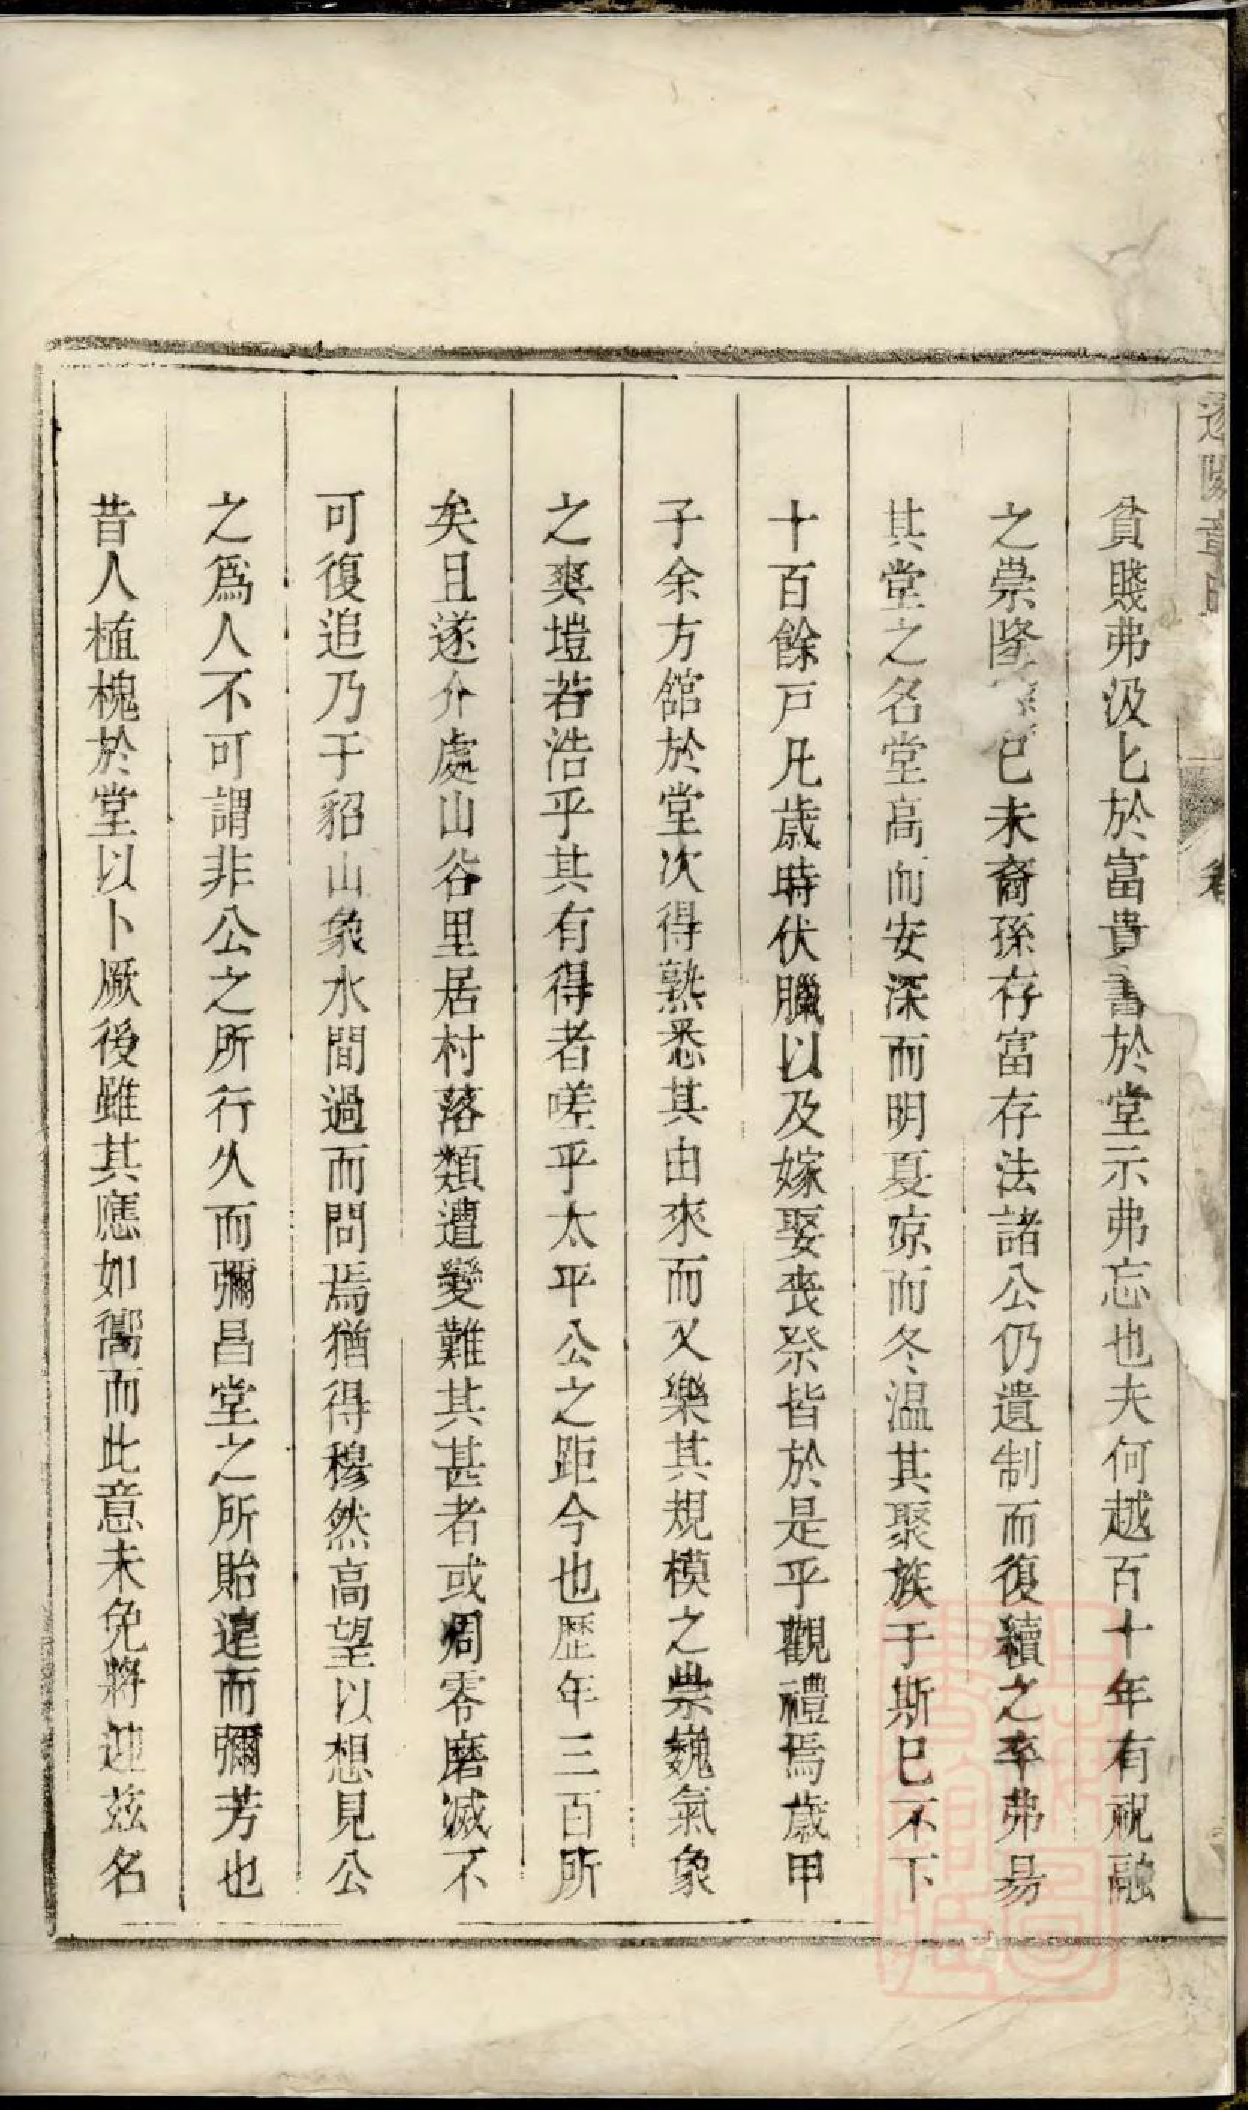 遂陽章
卷
貧賤弗汲匕於富貴書於堂示弗忘也夫何越百十年有祝融
之崇隆巳未裔孫存富存法諸公仍遺制而復續之卒弗昜
其堂之名堂高而安深而明夏凉而冬温其聚族于斯巳不下
十百餘戸凡歳時伏臘以及嫁娶喪祭皆於是乎觀禮焉歳甲
子余方舘於堂次得熟悉其由來而又樂其規模之崇巍氣象
之爽塏若浩乎其有得者嗟乎太平公之距今也歴年三百所
矣且遂介處山谷里居村落類遭變難其甚者或凋零磨滅不
可復追乃于貂山象水間過而問焉猶得穆然高望以想見公
之爲人不可謂非公之所行久而彌昌堂之所貽遠而彌芳也
昔人植槐於堂以卜厥後雖其應如嚮而此意未免將迎兹名